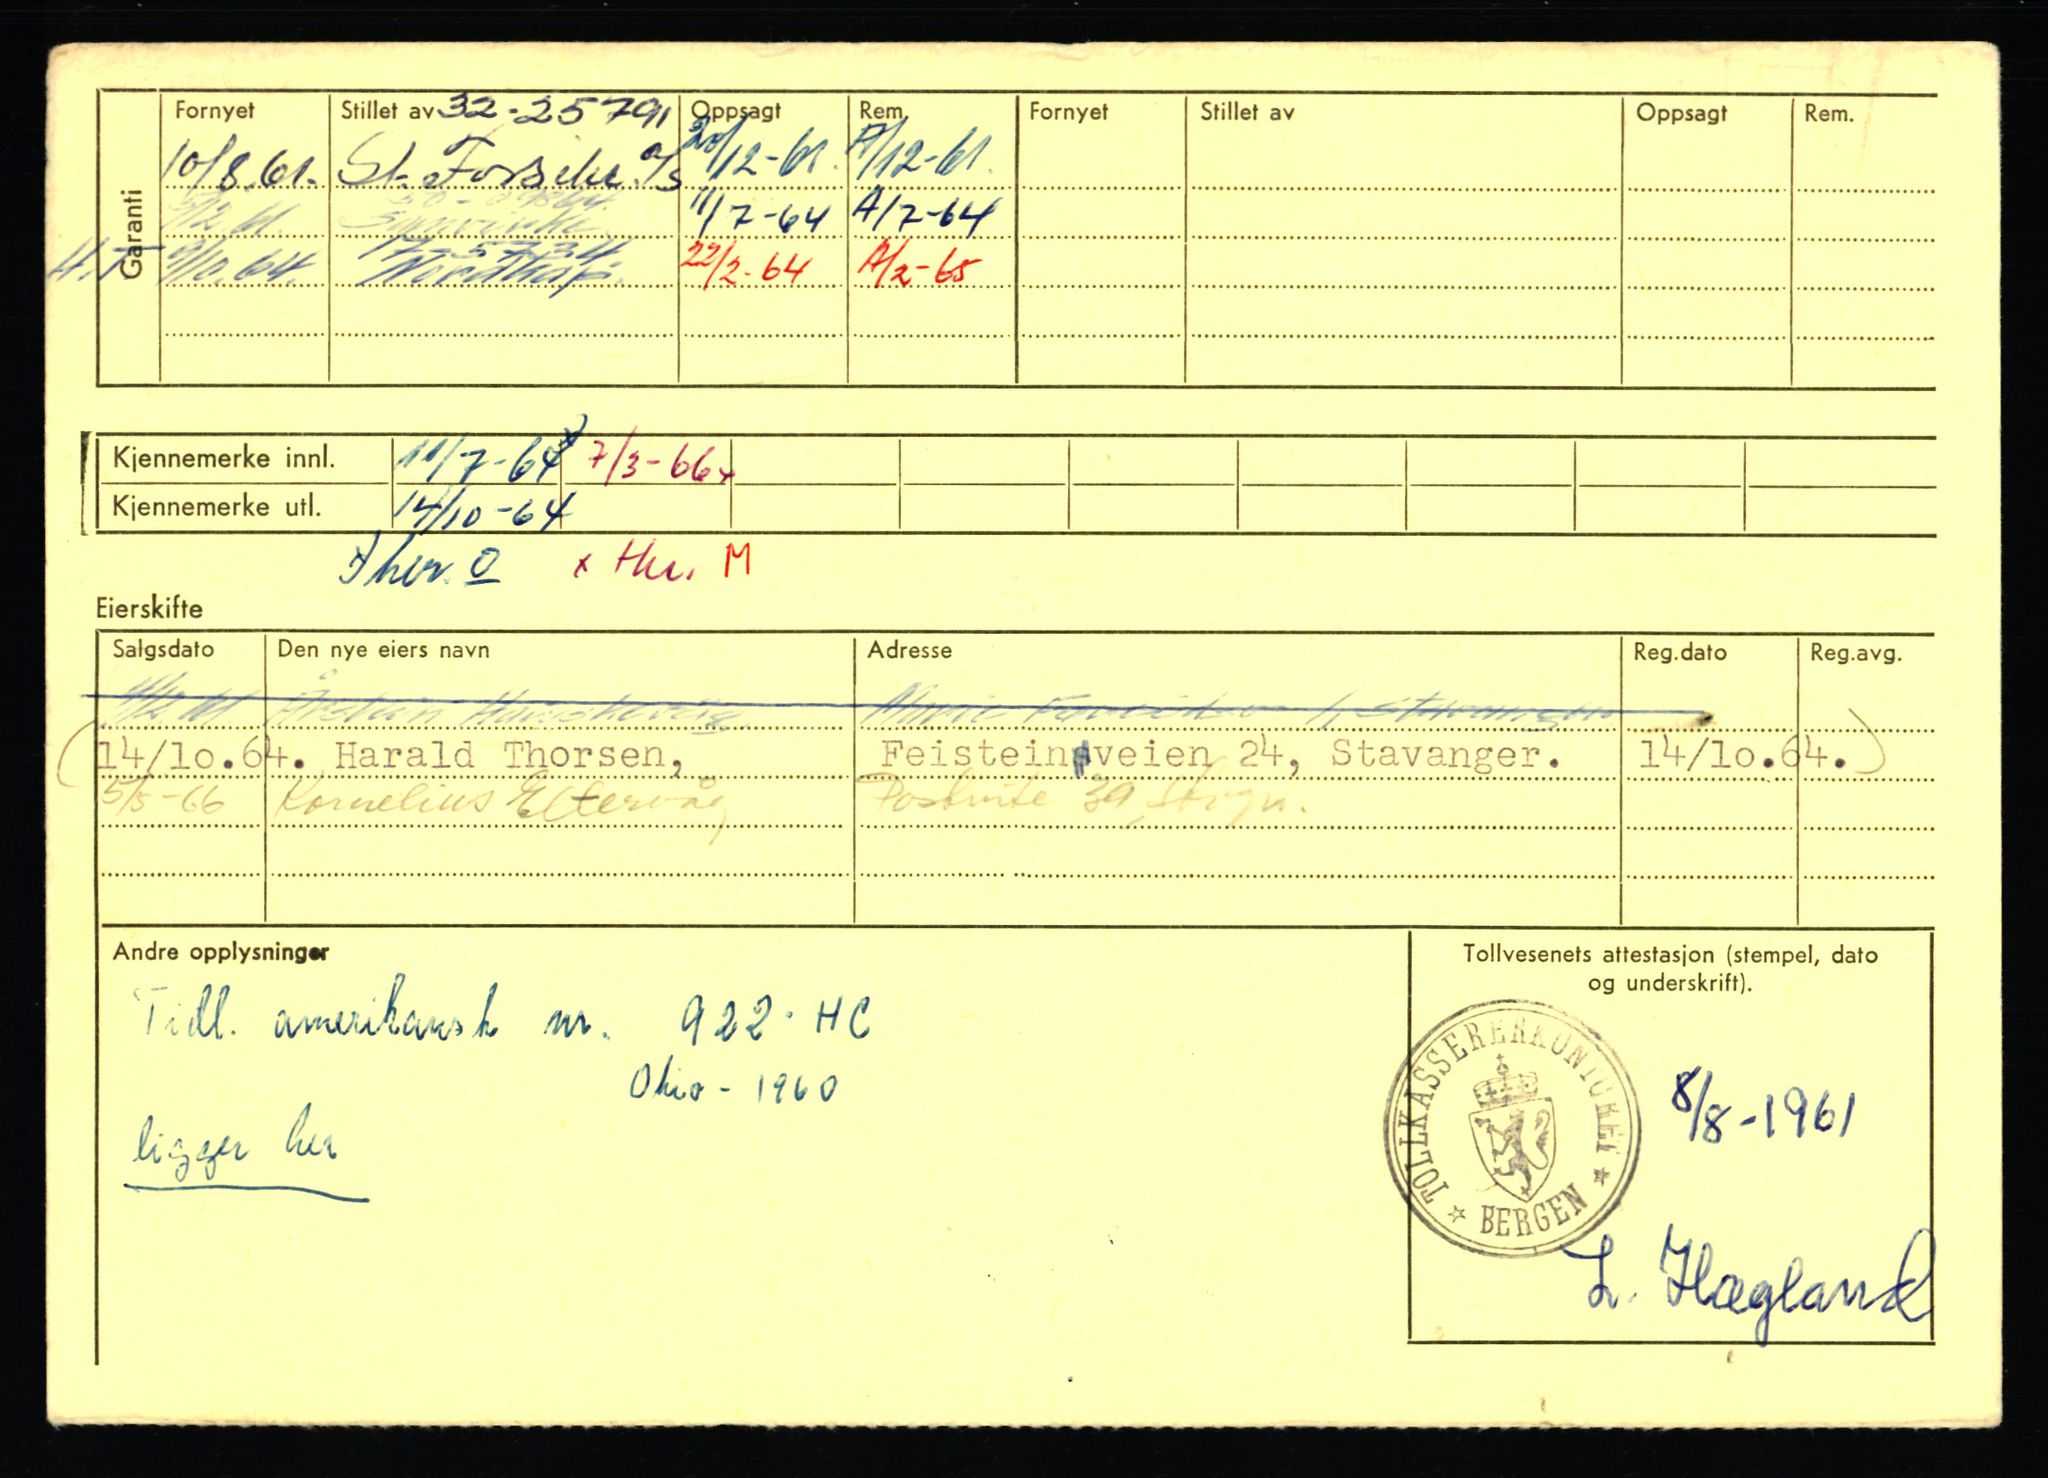 Garanti
Fornyet Stillet av 32-25791 Oppsagt Rem. Fornyet Stillet av Oppsagt Rem.
10/8.61. St. Forsikr. a/s 20/12-61. A/12-61.
11/7-64 A/7-64
H.T 9/10.64. 17-5734.
22/2-64 A/2-65
Kjennemerke innl. 11/7-64 x 7/3-66x
Kjennemerke utl. 14/10-64
x her. O x Her. M
Eierskifte
Salgsdato Den nye eiers navn Adresse Reg.dato Reg.avg.
(14/10.64. Harald Thorsen, Feisteinveien 24, Stavanger. 14/10.64.)
5/5-66 Kornelius Eltervåg 39
Andre opplysninger
Tidl. amerikansk nr. 922·HC
Ohio - 1960
ligger her
Tollvesenets attestasjon (stempel, dato
og underskrift).
TOLLKASSERERKONTORET
BERGEN
8/8-1961
L. Hægland